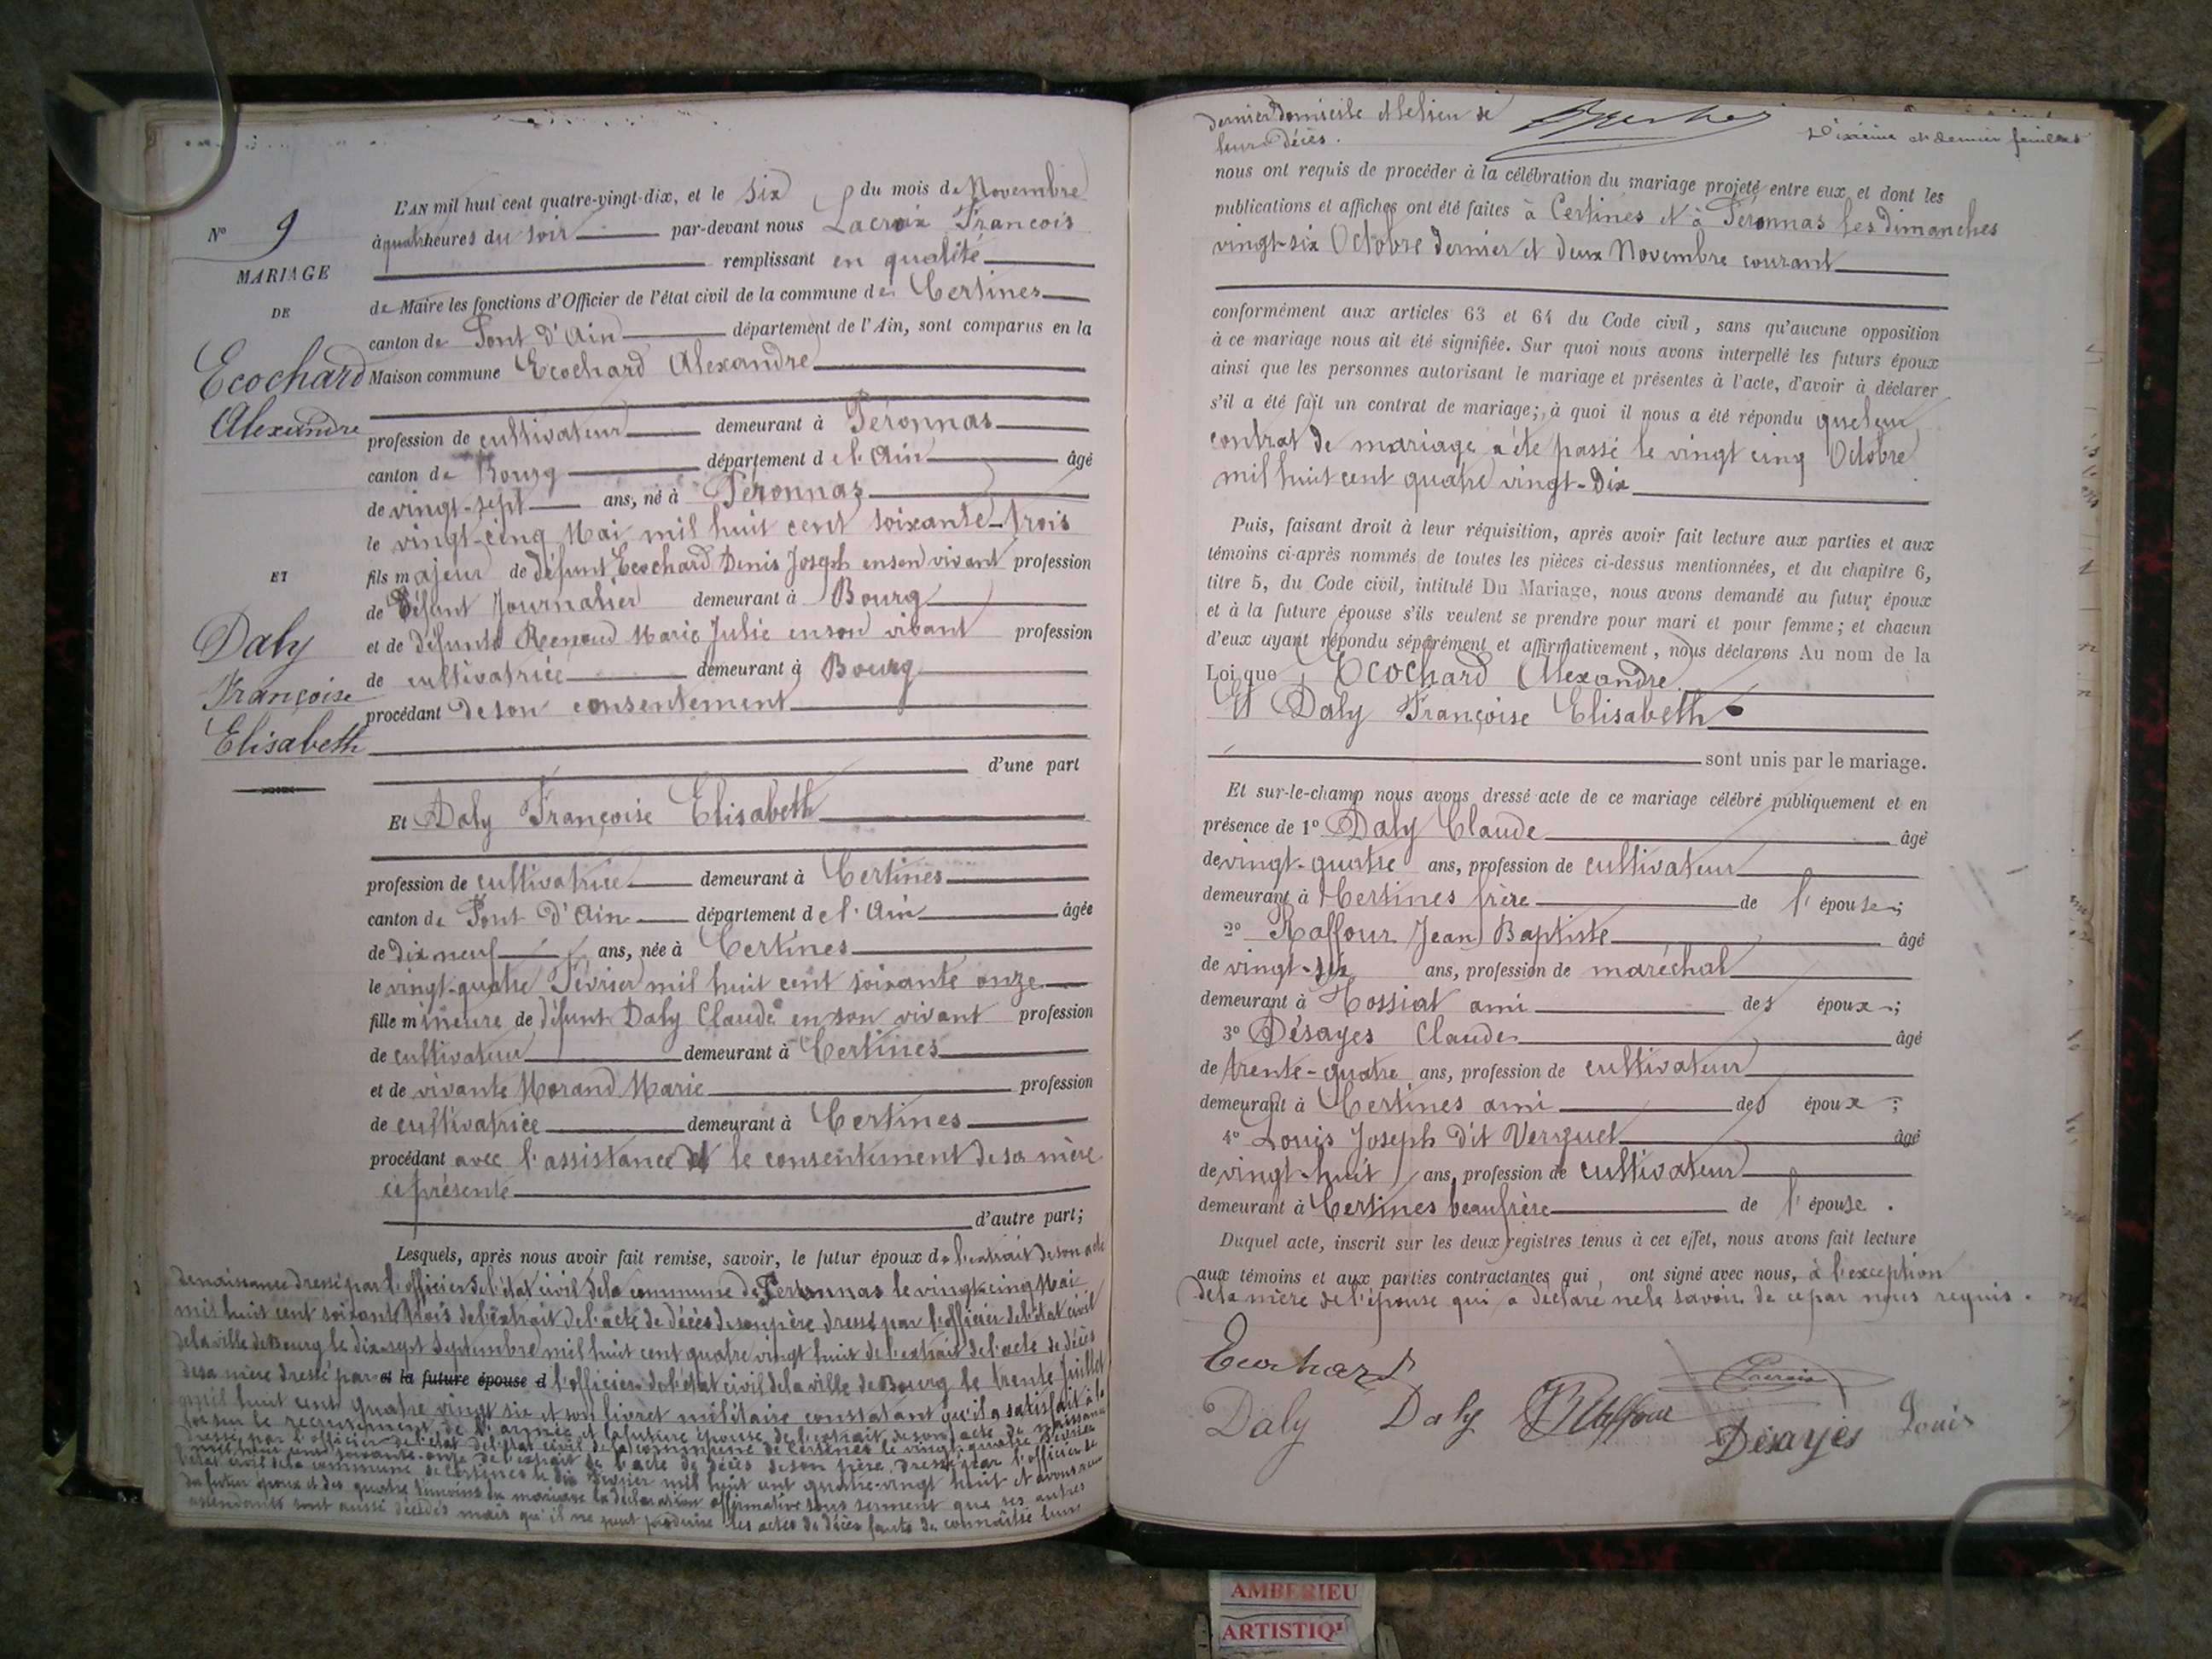 N° 9
MARIAGE
DE
Ecochard
Alexandre
ET
Daly
Françoise
Elisabeth
L'AN mil huit cent quatre-vingt-dix, et le Six du mois de Novembre
à quatre heures du soir par-devant nous Lacroix François
remplissant en qualité
de Maire les fonctions d'Officier de l'état civil de la commune de Certines
canton de Pont d'Ain département de l'Ain, sont comparus en la
Maison commune Ecochard Alexandre
profession de cultivateur demeurant à Péronnas
canton de Bourg département de l'Ain âgé
de vingt-sept ans, né à Péronnas
le vingt-cinq Mai mil huit cent soixante-trois
fils majeur de défunt Ecochard Denis Joseph en son vivant profession
de Journalier demeurant à Bourg
et de défunte Renaud Marie Julie en son vivant profession
de cultivatrice demeurant à Bourg
procédant de son consentement
d'une part
Et Daly Françoise Elisabeth
profession de cultivatrice demeurant à Certines
canton de Pont d'Ain département de l'Ain âgée
de dix neuf ans, née à Certines
le vingt-quatre Février mil huit cent soixante onze
fille mineure de défunt Daly Claude en son vivant profession
de cultivateur demeurant à Certines
et de vivante Morand Marie profession
de cultivatrice demeurant à Certines
procédant avec l'assistance et le consentement de sa mère
ci présente
d'autre part;
Lesquels, après nous avoir fait remise, savoir, le futur époux de l'extrait de son acte
de naissance dressé par l'officier de l'état civil de la commune de Péronnas le vingt-cinq Mai
mil huit cent soixante trois de l'extrait de l'acte de décès de son père dressé par l'officier de l'état civil
de la ville de Bourg le dix-sept Septembre mil huit cent quatre vingt huit de l'extrait de l'acte de décès
de sa mère dressé par et la future épouse d l'officier de l'état civil de la ville de Bourg le trente Juillet
mil huit cent quatre vingt six et son livret militaire constatant qu'il a satisfait à la
loi sur le recrutement de l'armée et la future épouse de l'extrait de son acte de naissance
dressé par l'officier de l'état de l'état civil de la commune de Certines le vingt-quatre Février
mil huit cent soixante-onze de l'extrait de l'acte de décès de son père dressé par l'officier de
l'état civil de la commune de Certines le dix Février mil huit cent quatre-vingt huit et avons reçu
du futur époux et des quatre témoins du mariage la déclaration affirmative sous serment que ses autres
ascendants sont aussi décédés mais qu'il ne peut produire les actes de décès faute de connaître leur
dernier domicile et le lieu de
leur décès.
Dixième et dernier feuillet
nous ont requis de procéder à la célébration du mariage projeté entre eux, et dont les
publications et affiches ont été faites à Certines et à Péronnas les dimanches
vingt-six Octobre dernier et deux Novembre courant
conformément aux articles 63 et 64 du Code civil, sans qu'aucune opposition
à ce mariage nous ait été signifiée. Sur quoi nous avons interpellé les futurs époux
ainsi que les personnes autorisant le mariage et présentes à l'acte, d'avoir à déclarer
s'il a été fait un contrat de mariage; à quoi il nous a été répondu que leur
contrat de mariage a été passé le vingt cinq Octobre
mil huit cent quatre vingt-dix
Puis, faisant droit à leur réquisition, après avoir fait lecture aux parties et aux
témoins ci-après nommés de toutes les pièces ci-dessus mentionnées, et du chapitre 6,
titre 5, du Code civil, intitulé Du Mariage, nous avons demandé au futur époux
et à la future épouse s'ils veulent se prendre pour mari et pour femme; et chacun
d'eux ayant répondu séparément et affirmativement, nous déclarons Au nom de la
Loi que Ecochard Alexandre
Et Daly Françoise Elisabeth
sont unis par le mariage.
Et sur-le-champ nous avons dressé acte de ce mariage célébré publiquement et en
présence de 1° Daly Claude âgé
de vingt-quatre ans, profession de cultivateur
demeurant à Certines frère de l'épouse;
2° Raffour Jean Baptiste âgé
de vingt-six ans, profession de maréchal
demeurant à Tossiat ami des époux;
3° Désayes Claude âgé
de trente-quatre ans, profession de cultivateur
demeurant à Certines ami des époux;
4° Louis Joseph dit Verguet âgé
de vingt-huit ans, profession de cultivateur
demeurant à Certines beaufrère de l'épouse.
Duquel acte, inscrit sur les deux registres tenus à cet effet, nous avons fait lecture
aux témoins et aux parties contractantes qui, ont signé avec nous, à l'exception
de la mère de l'épouse qui a déclaré ne le savoir de ce par nous requis.
Ecochard
Lacroix
Daly Daly Raffour Désayes Louis
AMBERIEU
ARTISTIQ